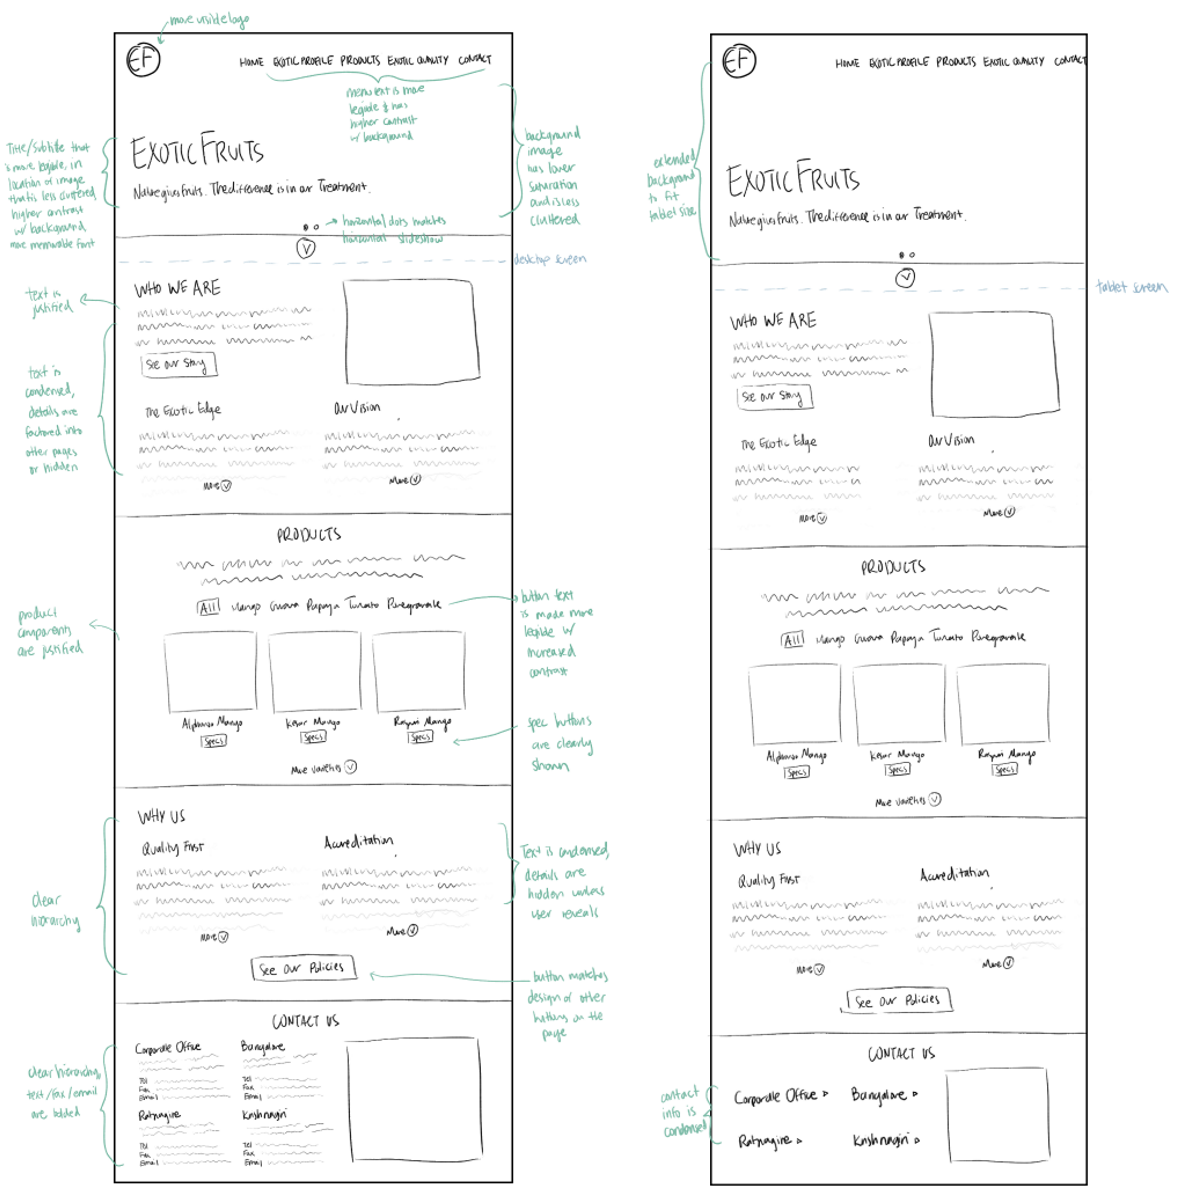 more visible logo
EF
HOME EXOTIC PROFILE PRODUCTS EXOTIC QUALITY CONTACT
menu text is more
legible & has
higher contrast
w/ background
Title/Subtitle that
is more legible, in
location of image
that is less cluttered
higher contrast
w/ background
more memorable font
EXOTIC FRUITS
Nature gives fruits. The difference is in our Treatment.
background
image
has lower
saturation
and is less
cluttered
horizontal dots matches
horizontal slideshow
desktop screen
text is
justified
WHO WE ARE
See our Story
text is
condensed,
details are
factored into
other pages
or hidden
The Exotic Edge
Our Vision
More
More
PRODUCTS
All Mango Guava Papaya Tomato Pomegranate
button text
is made more
legible w/
increased
contrast
product
components
are justified
Alphonso Mango
Kesar Mango
Rajpuri Mango
Specs
Specs
Specs
spec buttons
are clearly
shown
More varieties
WHY US
Quality First
Accreditation
Text is condensed,
details are
hidden unless
user reveals
clear
hierarchy
More
More
See Our Policies
button matches
design of other
buttons on the
page
CONTACT US
Corporate Office
Bangalore
Tel
Fax
Email
Tel
Fax
Email
clear hierarchy,
text/fax/email
are bolded
Ratnagire
Krishnagiri
Tel
Fax
Email
Tel
Fax
Email
EF
HOME EXOTIC PROFILE PRODUCTS EXOTIC QUALITY CONTACT
extended
background
to fit
tablet size
EXOTIC FRUITS
Nature gives fruits. The difference is in our Treatment.
tablet screen
WHO WE ARE
See our Story
The Exotic Edge
Our Vision
More
More
PRODUCTS
All Mango Guava Papaya Tomato Pomegranate
Alphonso Mango
Kesar Mango
Rajpuri Mango
Specs
Specs
Specs
More varieties
WHY US
Quality First
Accreditation
More
More
See Our Policies
CONTACT US
contact
info is
condensed
Corporate Office
Bangalore
Ratnagire
Krishnagiri